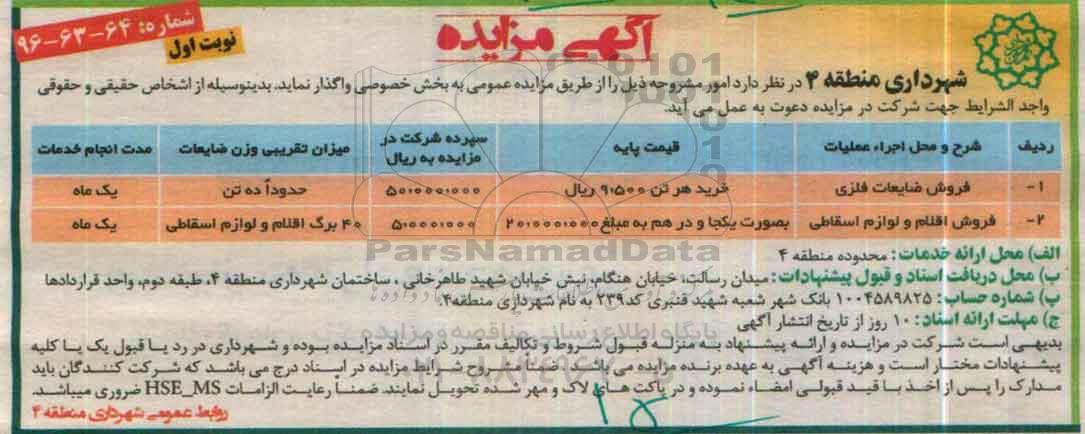 شماره: ۶۴-۶۳-۹۶
نوبت اول
آگهی مزایده
شهرداری منطقه ۴ در نظر دارد امور مشروحه ذیل را از طریق مزایده عمومی به بخش خصوصی واگذار نماید. بدینوسیله از اشخاص حقیقی و حقوقی
واجد الشرایط جهت شرکت در مزایده دعوت به عمل می آید.
ردیف شرح و محل اجراء عملیات قیمت پایه سپرده شرکت در مزایده به ریال میزان تقریبی وزن ضایعات مدت انجام خدمات
۱- فروش ضایعات فلزی خرید هر تن ۹،۵۰۰ ریال ۵۰،۰۰۰،۰۰۰ حدوداً ده تن یک ماه
۲- فروش اقلام و لوازم اسقاطی بصورت یکجا و در هم به مبلغ ۲۰،۰۰۰،۰۰۰ ۵،۰۰۰،۰۰۰ ۴۰ برگ اقلام و لوازم اسقاطی یک ماه
ParsNamadData
الف) محل ارائه خدمات: محدوده منطقه ۴
ب) محل دریافت اسناد و قبول پیشنهادات: میدان رسالت، خیابان هنگام، نبش خیابان شهید طاهرخانی ، ساختمان شهرداری منطقه ۴، طبقه دوم، واحد قراردادها
پ) شماره حساب: ۱۰۰۴۵۸۹۸۲۵ بانک شهر شعبه شهید قنبری کد ۲۳۹ به نام شهرداری منطقه۴.
ج) مهلت ارائه اسناد: ۱۰ روز از تاریخ انتشار آگهی
پایگاه اطلاع رسانی مناقصه و مزایده
بدیهی است شرکت در مزایده و ارائه پیشنهاد به منزله قبول شروط و تکالیف مقرر در اسناد مزایده بوده و شهرداری در رد یا قبول یک یا کلیه
پیشنهادات مختار است و هزینه آگهی به عهده برنده مزایده می باشد. ضمناً مشروح شرایط مزایده در اسناد درج می باشد که شرکت کنندگان باید
مدارک را پس از اخذ با قید قبولی امضاء نموده و در پاکت های لاک و مهر شده تحویل نمایند. ضمناً رعایت الزامات HSE_MS ضروری میباشد.
روابط عمومی شهرداری منطقه ۴